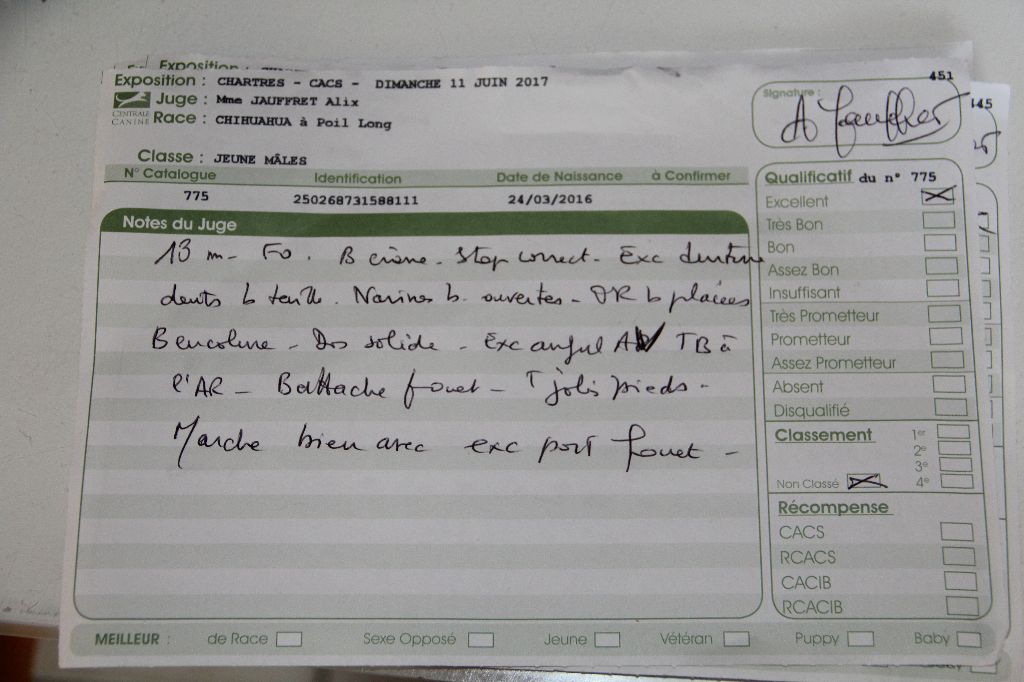 Exposition :
Exposition : CHARTRES - CACS - DIMANCHE 11 JUIN 2017
451
Juge : Mme JAUFFRET Alix
Signature :
A Jauffret
145
CENTRALE CANINE
Race : CHIHUAHUA à Poil Long
Classe : JEUNE MÂLES
N° Catalogue Identification Date de Naissance à Confirmer
775 250268731588111 24/03/2016
Notes du Juge
13 m - Fo. B crâne - Stop correct - Exc denture
dents b . Narines b. ouvertes - OR b placées
B encolure - Dos solide - Exc angul AV TB à
l'AR - B attache fouet - T jolis pieds -
Marche bien avec exc port fouet -
Qualificatif du n° 775
Excellent
Très Bon
Bon
Assez Bon
Insuffisant
Très Prometteur
Prometteur
Assez Prometteur
Absent
Disqualifié
Classement 1er
2e
3e
Non Classé 4e
Récompense
CACS
RCACS
CACIB
RCACIB
MEILLEUR : de Race Sexe Opposé Jeune Vétéran Puppy Baby